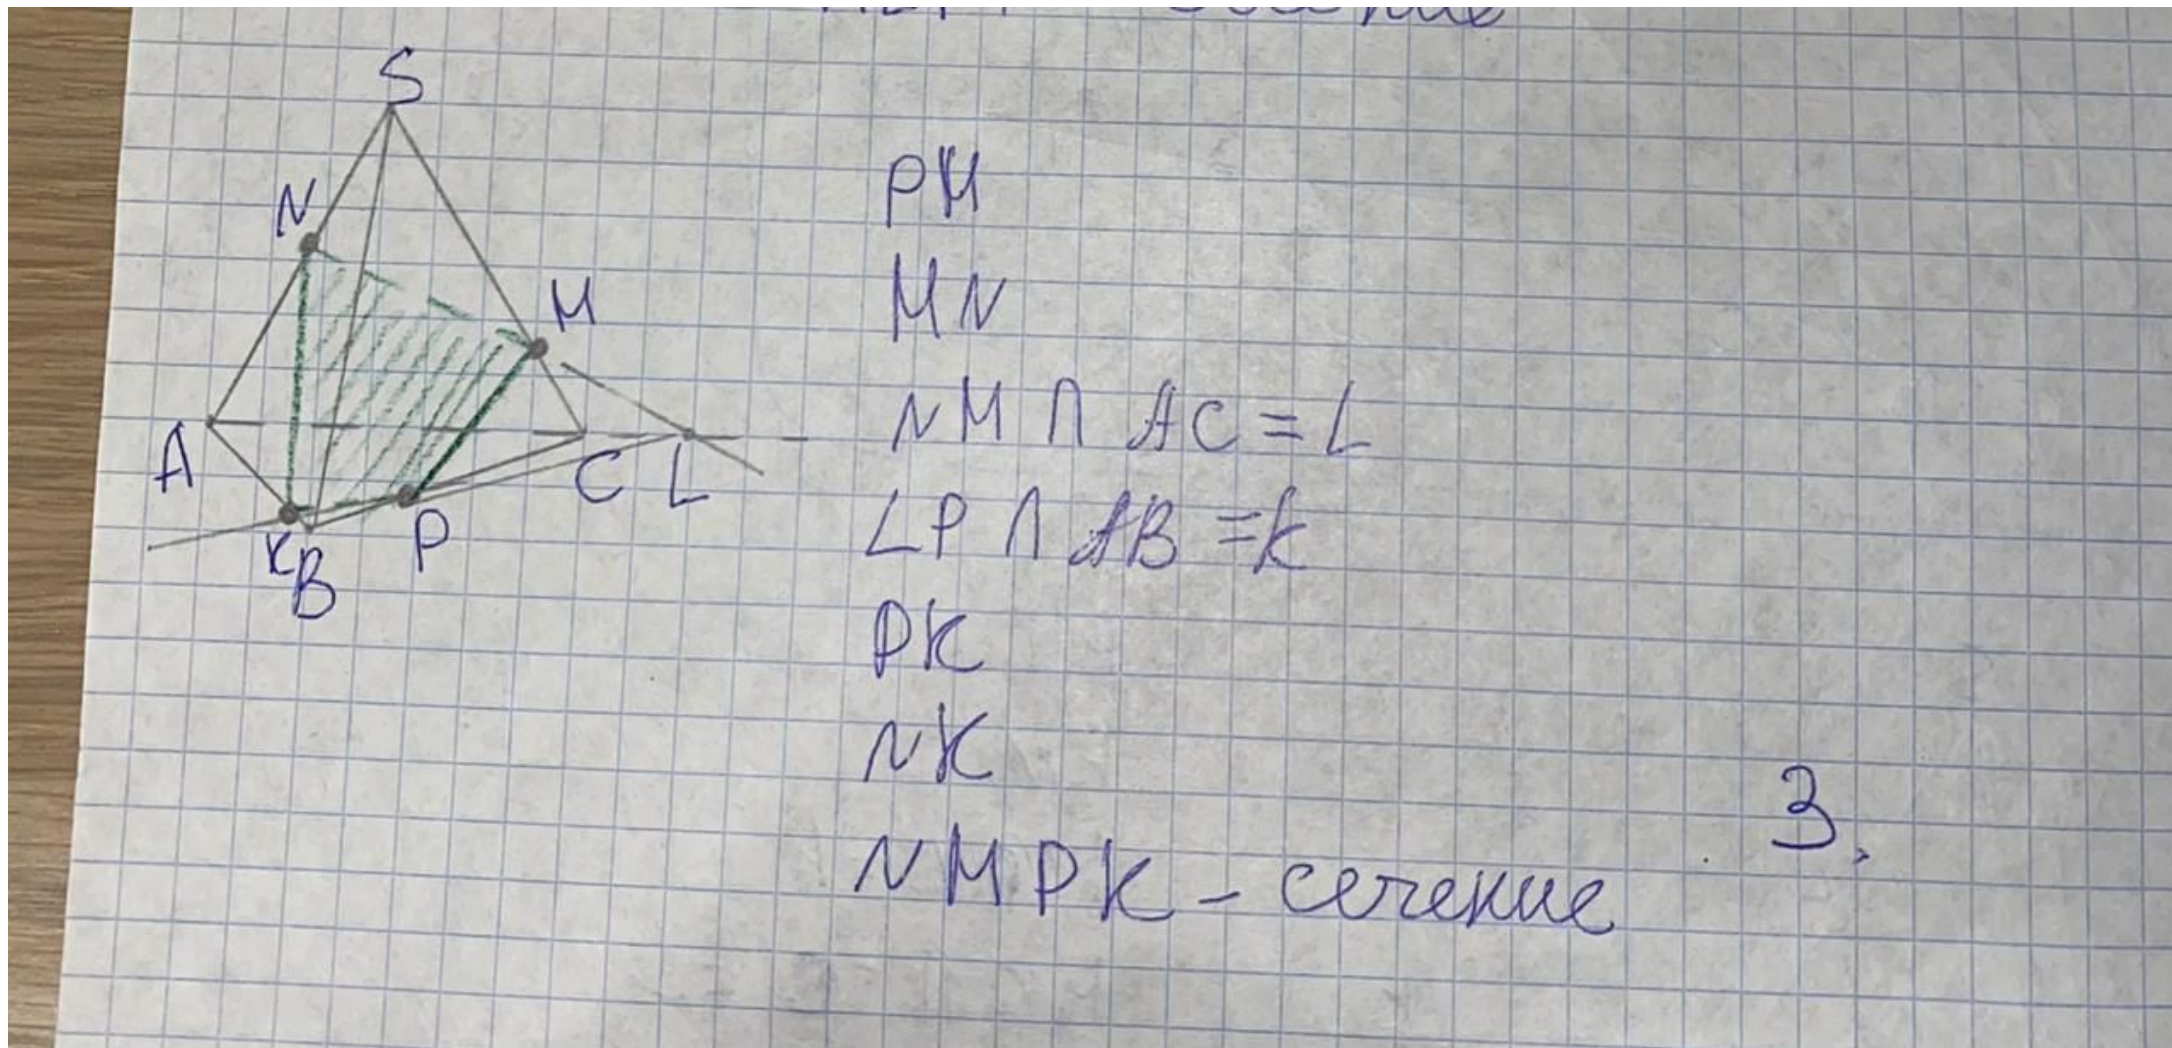 сечение
S
N
M
A
C L
K
B
P
PM
MN
NM ∩ AC = L
LP ∩ AB = K
PK
NK
NMPK - сечение
3.